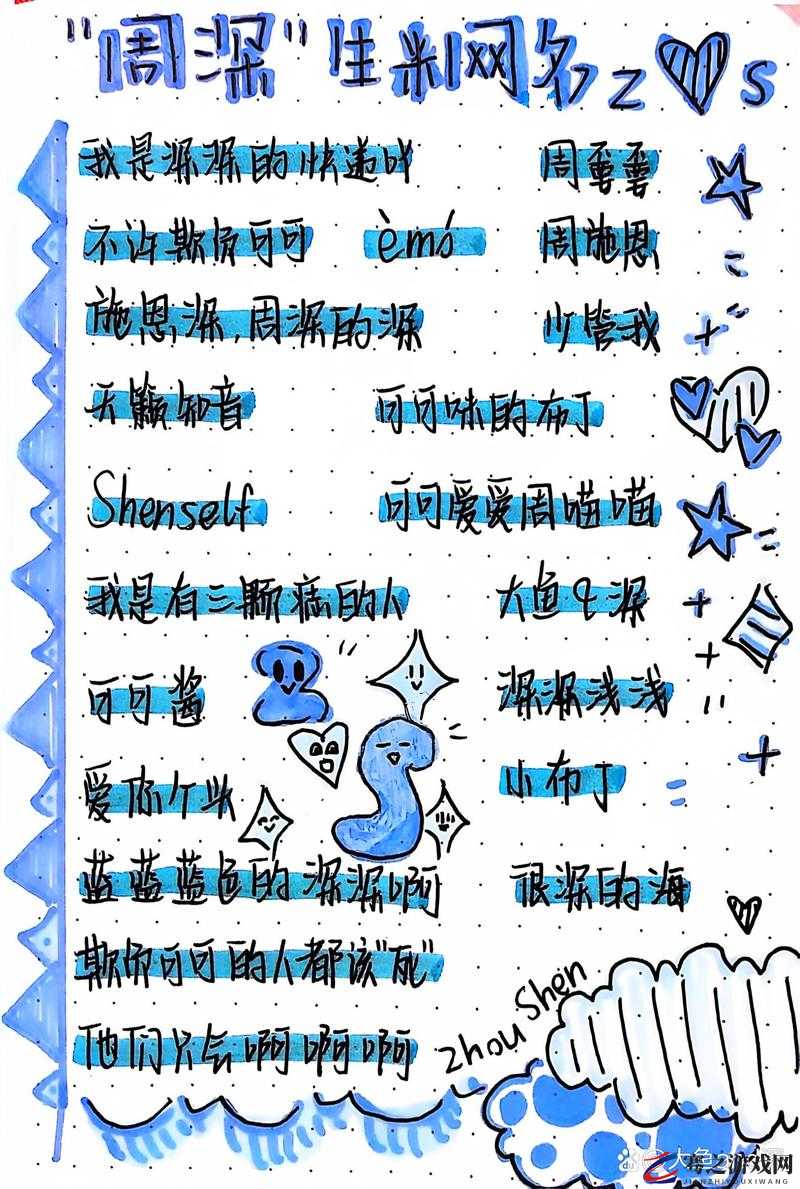 "周深"生米网名 Z S
我是深深的快递吖 周雲雲
不许欺负可可 èmó 周施恩
施恩深,周深的深 少管我
天籁知音 可可味的布丁
Shenself 可可爱爱周喵喵
我是有三颗痣的人 大鱼&深
可可酱 深深浅浅
爱你个头 小布丁
蓝蓝蓝色的深深啊 很深的海
欺负可可的人都该"死"
他们只会啊啊啊
Zhou Shen
大鱼
游戏网
JIANZHIYOUXIWANG